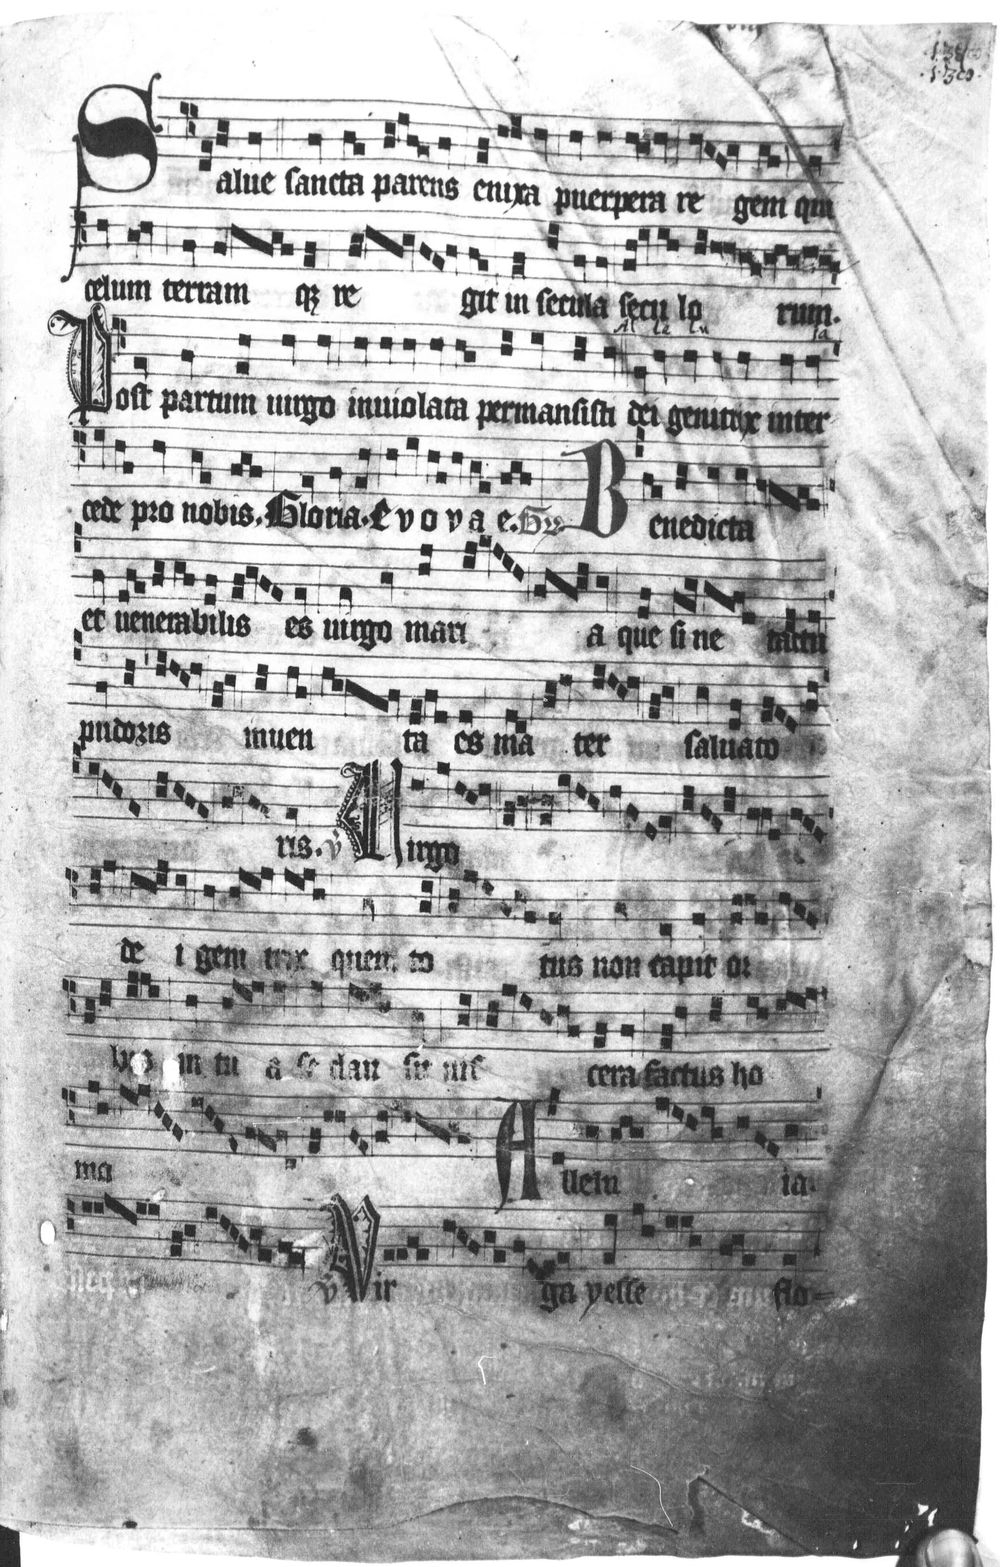 Salue sancta parens enixa puerpera re gem qui
celum terram qꝫ re git in secula secu lo rum.
Al le lu ia
Post partum uirgo inuiolata permansisti dei genitrix inter
cede pro nobis. Gloria. E v o v a e. Gr̄ Benedicta
et uenerabilis es uirgo mari a que si ne tactu
pudoris inuen ta es ma ter saluato
ris. ℣ Uirgo
de i geni trix quem to tus non capit or
bis in tu a se clau sit uis cera factus ho
mo Allelu ia.
℣ Vir ga yesse flo-